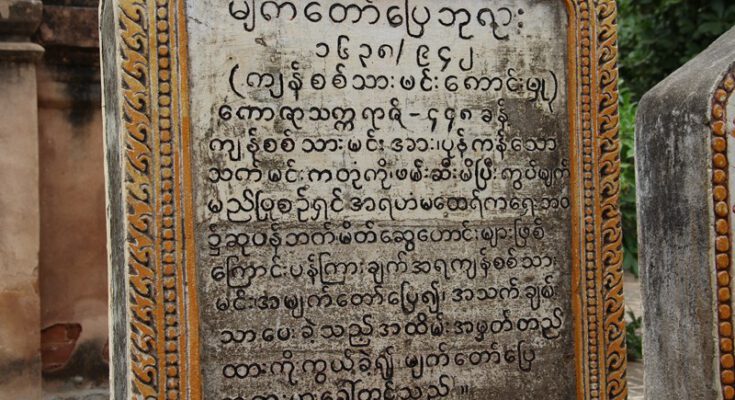 မျက်တော်ပြေဘုရား
၁၆၃၈/၉၄၂
(ကျန်စစ်သားမင်းကောင်းမှု)
ကောဇာသက္ကရာဇ်-၄၄၈ ခုနှစ်
ကျန်စစ်သားမင်းအားပုန်ကန်သော
သက်မင်းကတုံကိုဖမ်းဆီးမိပြီးကွပ်မျက်
မည်ပြုစဉ်ရှင်အရဟံမထေရ်ကရှေးဘဝ
၌ဆုပန်ဘက်မိတ်ဆွေဟောင်းများဖြစ်
ကြောင်းပန်ကြားချက်အရကျန်စစ်သား
မင်းအမျက်တော်ပြေ၍၊ အသက်ချမ်း
သာပေးခဲ့သည်အထိမ်းအမှတ်တည်
ထားကိုးကွယ်ခဲ့၍ မျက်တော်ပြေ